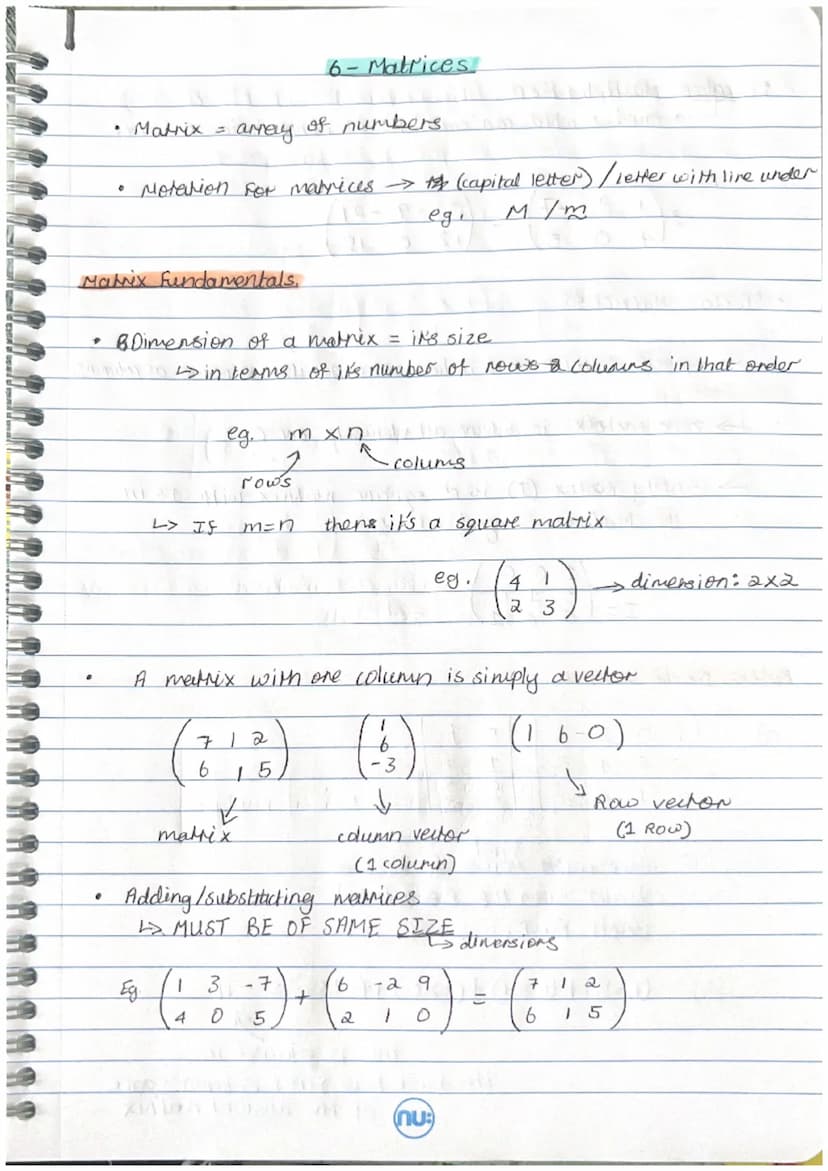 6 - Matrices
• Matrix = array of numbers
• Notation for matrices → (capital letter) / letter with line under
eg. M / m
Matrix Fundamentals.
• Dimension of a matrix = it's size
↳ in terms of it's number of rows & columns in that order
eg. m × n
colums
rows
↳ If m=n thens it's a square matrix
eg. (4 1
2 3) → dimension: 2×2
• A matrix with one column is simply a vector
(7 1 2 (1 (1 6 -0)
6 1 5) 6
-3)
Row vector
matrix column vector (1 Row)
(1 column)
• Adding/substracting matrices
↳ MUST BE OF SAME SIZE
↳ dimensions
Eg (1 3 -7 + (6 -2 9 = (7 1 2
4 0 5) 2 1 0) 6 1 5)
nu: